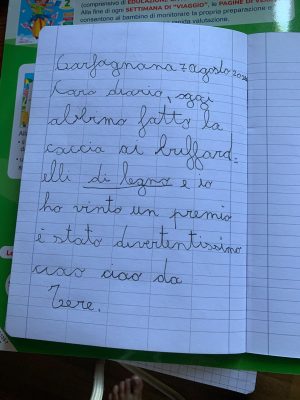 (comprensivo di EDUCAZIONE
Alla fine di ogni SETTIMANA DI "VIAGGIO", le PAGINE DI VE
consentono al bambino di monitorare la propria preparazione o
valutazione.
Garfagnana 7 agosto 2020
Caro diario, oggi
abbiamo fatto la
caccia ai buffard=
elli di legno e io
ho vinto un premio
è stato divertentissimo
ciao ciao da
Tere.